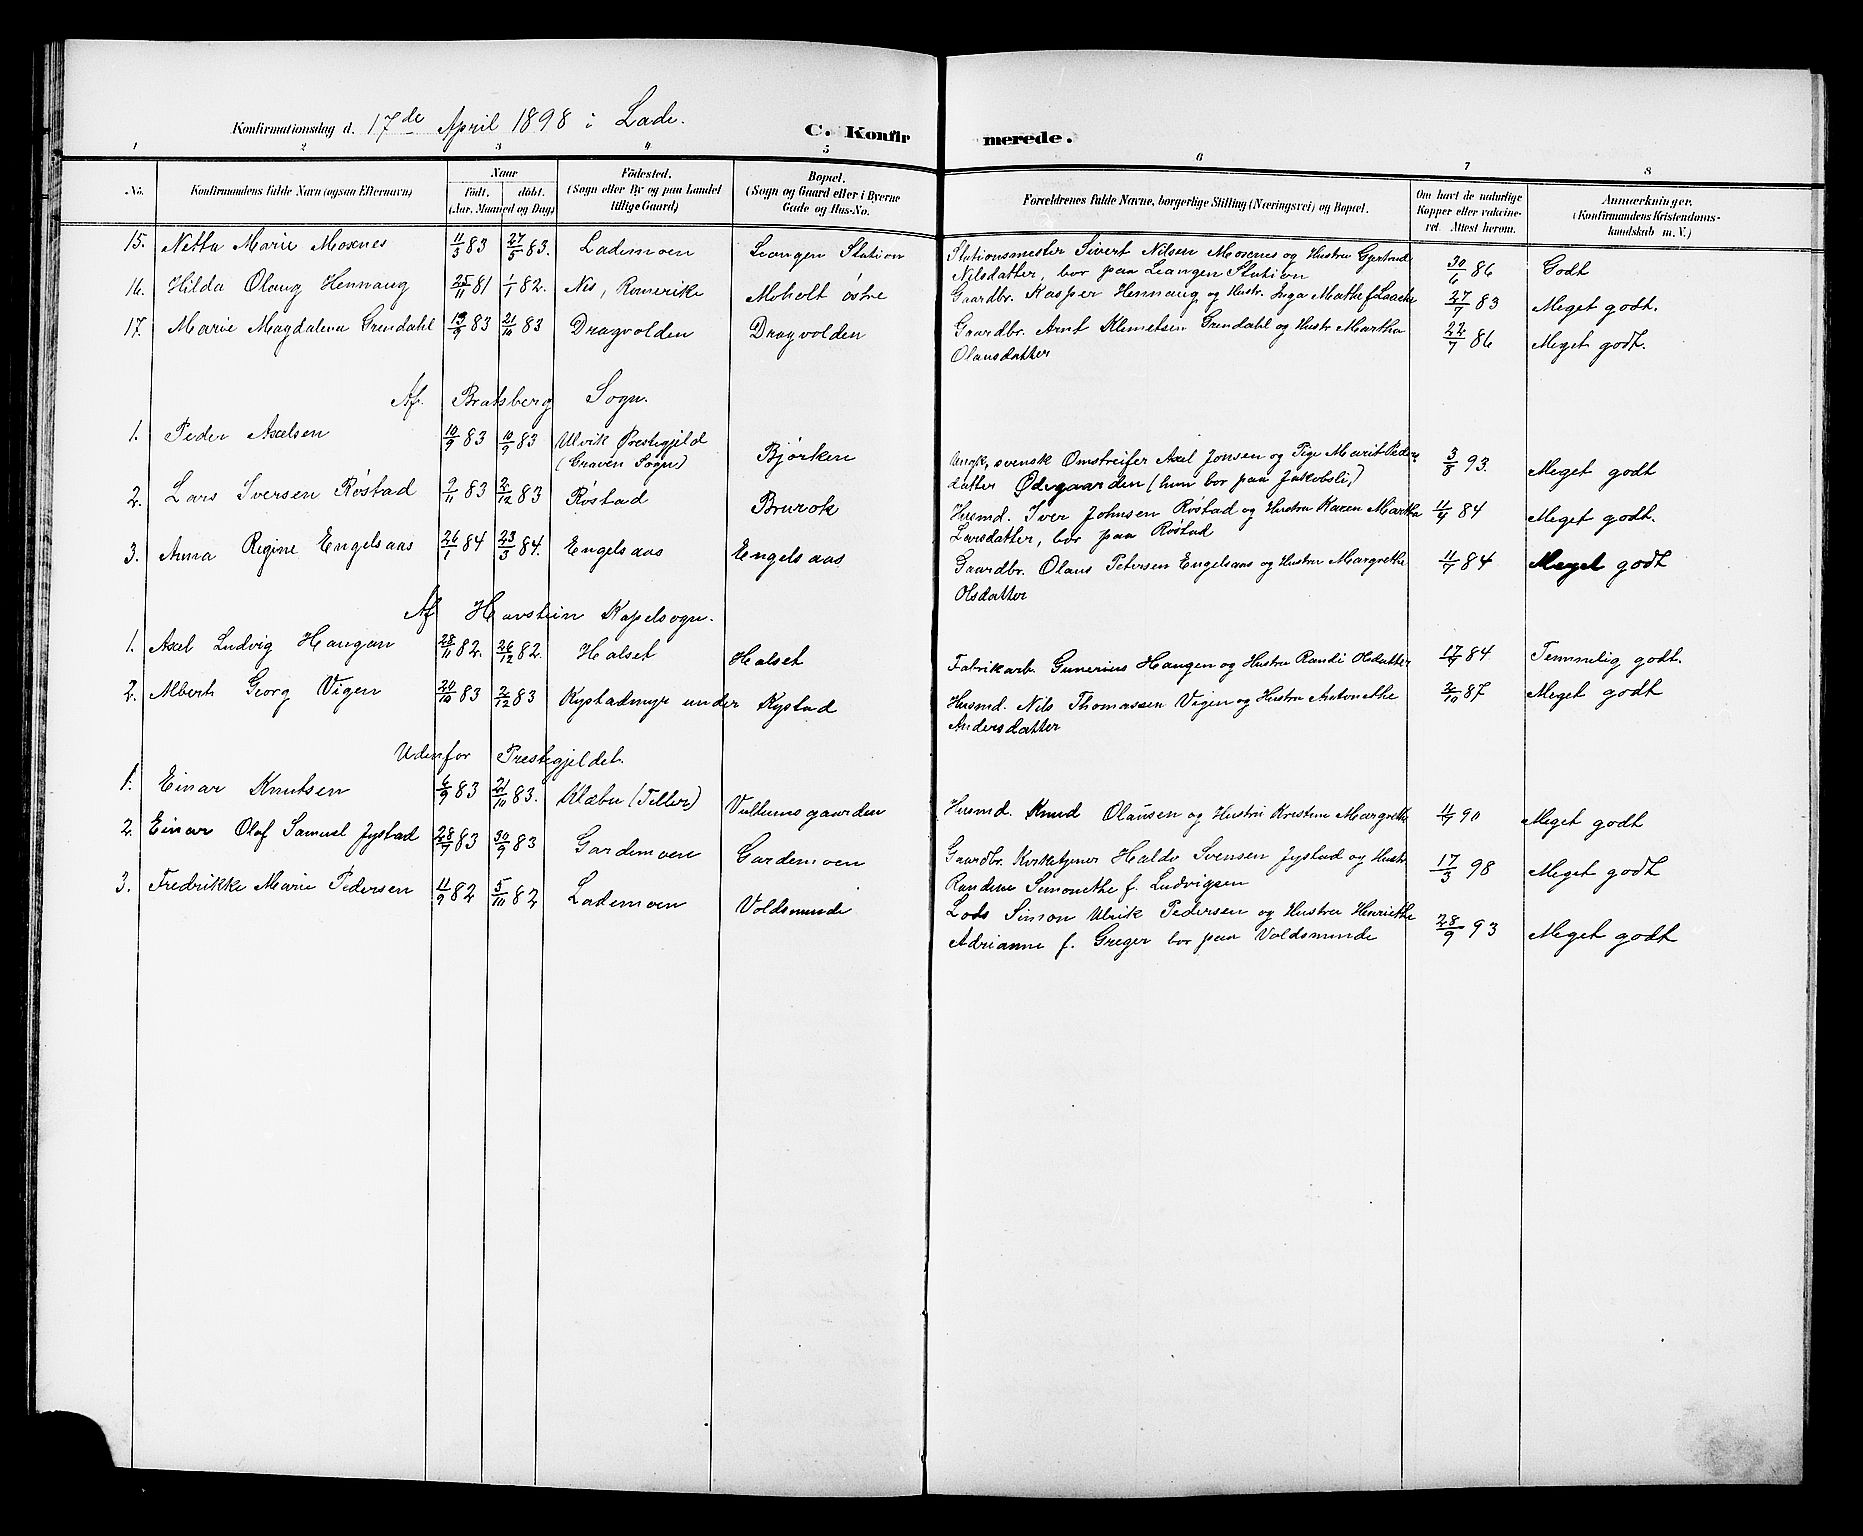 Konfirmationsdag d. 17de April 1898 i Lade. C. Konfirmerede.
1 2 3 4 5 6 7 8
No. Konfirmandens fulde Navn (ogsaa Efternavn) Naar födt. döbt. (Aar, Maaned og Dag) Födested. (Sogn eller By og paa Landet tillige Gaard) Bopæl. (Sogn og Gaard eller i Byerne Gade og Hus-No. Forældrenes fulde Navne, borgerlige Stilling (Næringsvei) og Bopæl. Om havt de naturlige Kopper eller vaccineret. Attest herom. Anmærkninger. (Konfirmandens Kristendomskundskab m. V.)
15. Netta Marie Moxnes 11/3 83 27/5 83. Lademoen Leangen Station Stationsmester Sivert Nilsen Moxnes og Hustru Gjertrud
Nilsdatter, bor paa Leangen Station 30/6 86 Godt
16. Hilda Olaug Hennaug 25/11 81 1/1 82. Nes, Romerike Moholt östre Gaardbr. Kasper Hennaug og Hustr. Inga Mathe f. Laache 27/7 83 Meget godt.
17. Marie Magdalena Grendahl 13/9 83 21/10 83 Dragvolden Dragvolden Gaardbr. Arnt Klemetsen Grendahl og Hustr Martha
Olausdatter 22/7 86 Meget godt.
Af Bratsberg Sogn.
1. Peder Axelsen 10/9 83 10/9 83 Ulvik Prestegjeld
(Graven Sogn) Bjørken Ungk, svensk Omstreifer Axel Jonsen og Pige Marit Peders
datter Ødegaarden (hun bor paa Jakobsli) 3/8 93. Meget godt
2. Lars Iversen Røstad 9/11 83 2/12 83 Røstad Brurok Husmd. Iver Johnsen Røstad og Hustru Karen Martha
Larsdatter, bor paa Røstad 11/9 84 Meget godt.
3. Anna Regine Engelsaas 26/1 84 23/3 84. Engelsaas Engelsaas Gaardbr. Olaus Petersen Engelsaas og Hustru Margrethe
Olsdatter 11/9 84 Meget godt
Af Havstein Kapelsogn.
1. Axel Ludvig Haugan 28/11 82. 26/12 82. Halset Halset Fabrikarb. Gunerius Haugen og Hustru Randi Olsdatter 17/9 84 Temmelig godt.
2. Albert Georg Vigen 20/10 83 2/12 83 Kystadmyr under Kystad Husmd. Nils Thomassen Vigen og Hustru Antonethe
Andersdatter 2/10 87 Meget godt
Udenfor Prestegjeldet.
1. Einar Knutsen 6/9 83 21/10 83. Klæbu (Tiller) Vullumsgaarden Husmd. Knud Olausen og Hustru Kristine Margrethe 11/9 90 Meget godt
2. Einar Olaf Samuel Jystad 28/7 83 30/9 83 Gardemoen Gardemoen Gaardbr. Kirketjener Haldo Svensen Jystad og Hustr.
Randine Simonethe f. Ludvigsen 17/3 98 Meget godt
3. Fredrikke Marie Pedersen 11/9 82 5/10 82 Lademoen Voldsminde Lods Simon Ulrik Pedersen og Hustru Henriethe
Adrianne f. Greger bor paa Voldsminde 28/9 93 Meget godt